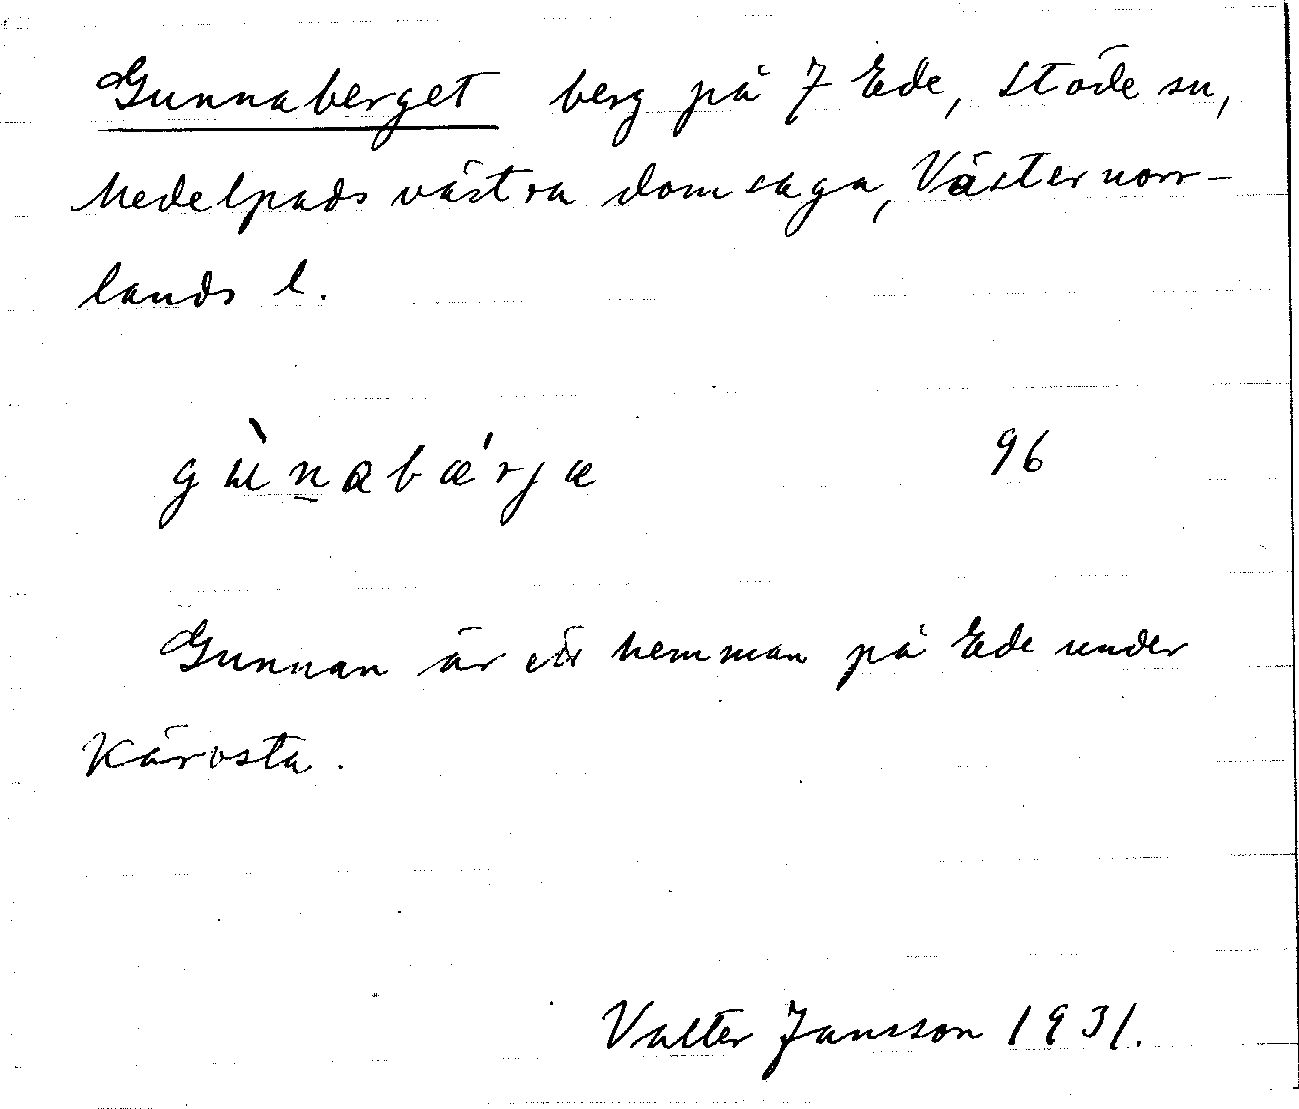 Gunnaberget berg på 7 Ede, Stöde sn,
Medelpads västra domsaga, Västernorr-
lands l.
gùnabǽrjæ 96
Gunnan är ett hemman på Ede under
Kärvsta.
Valter Jansson 1931.